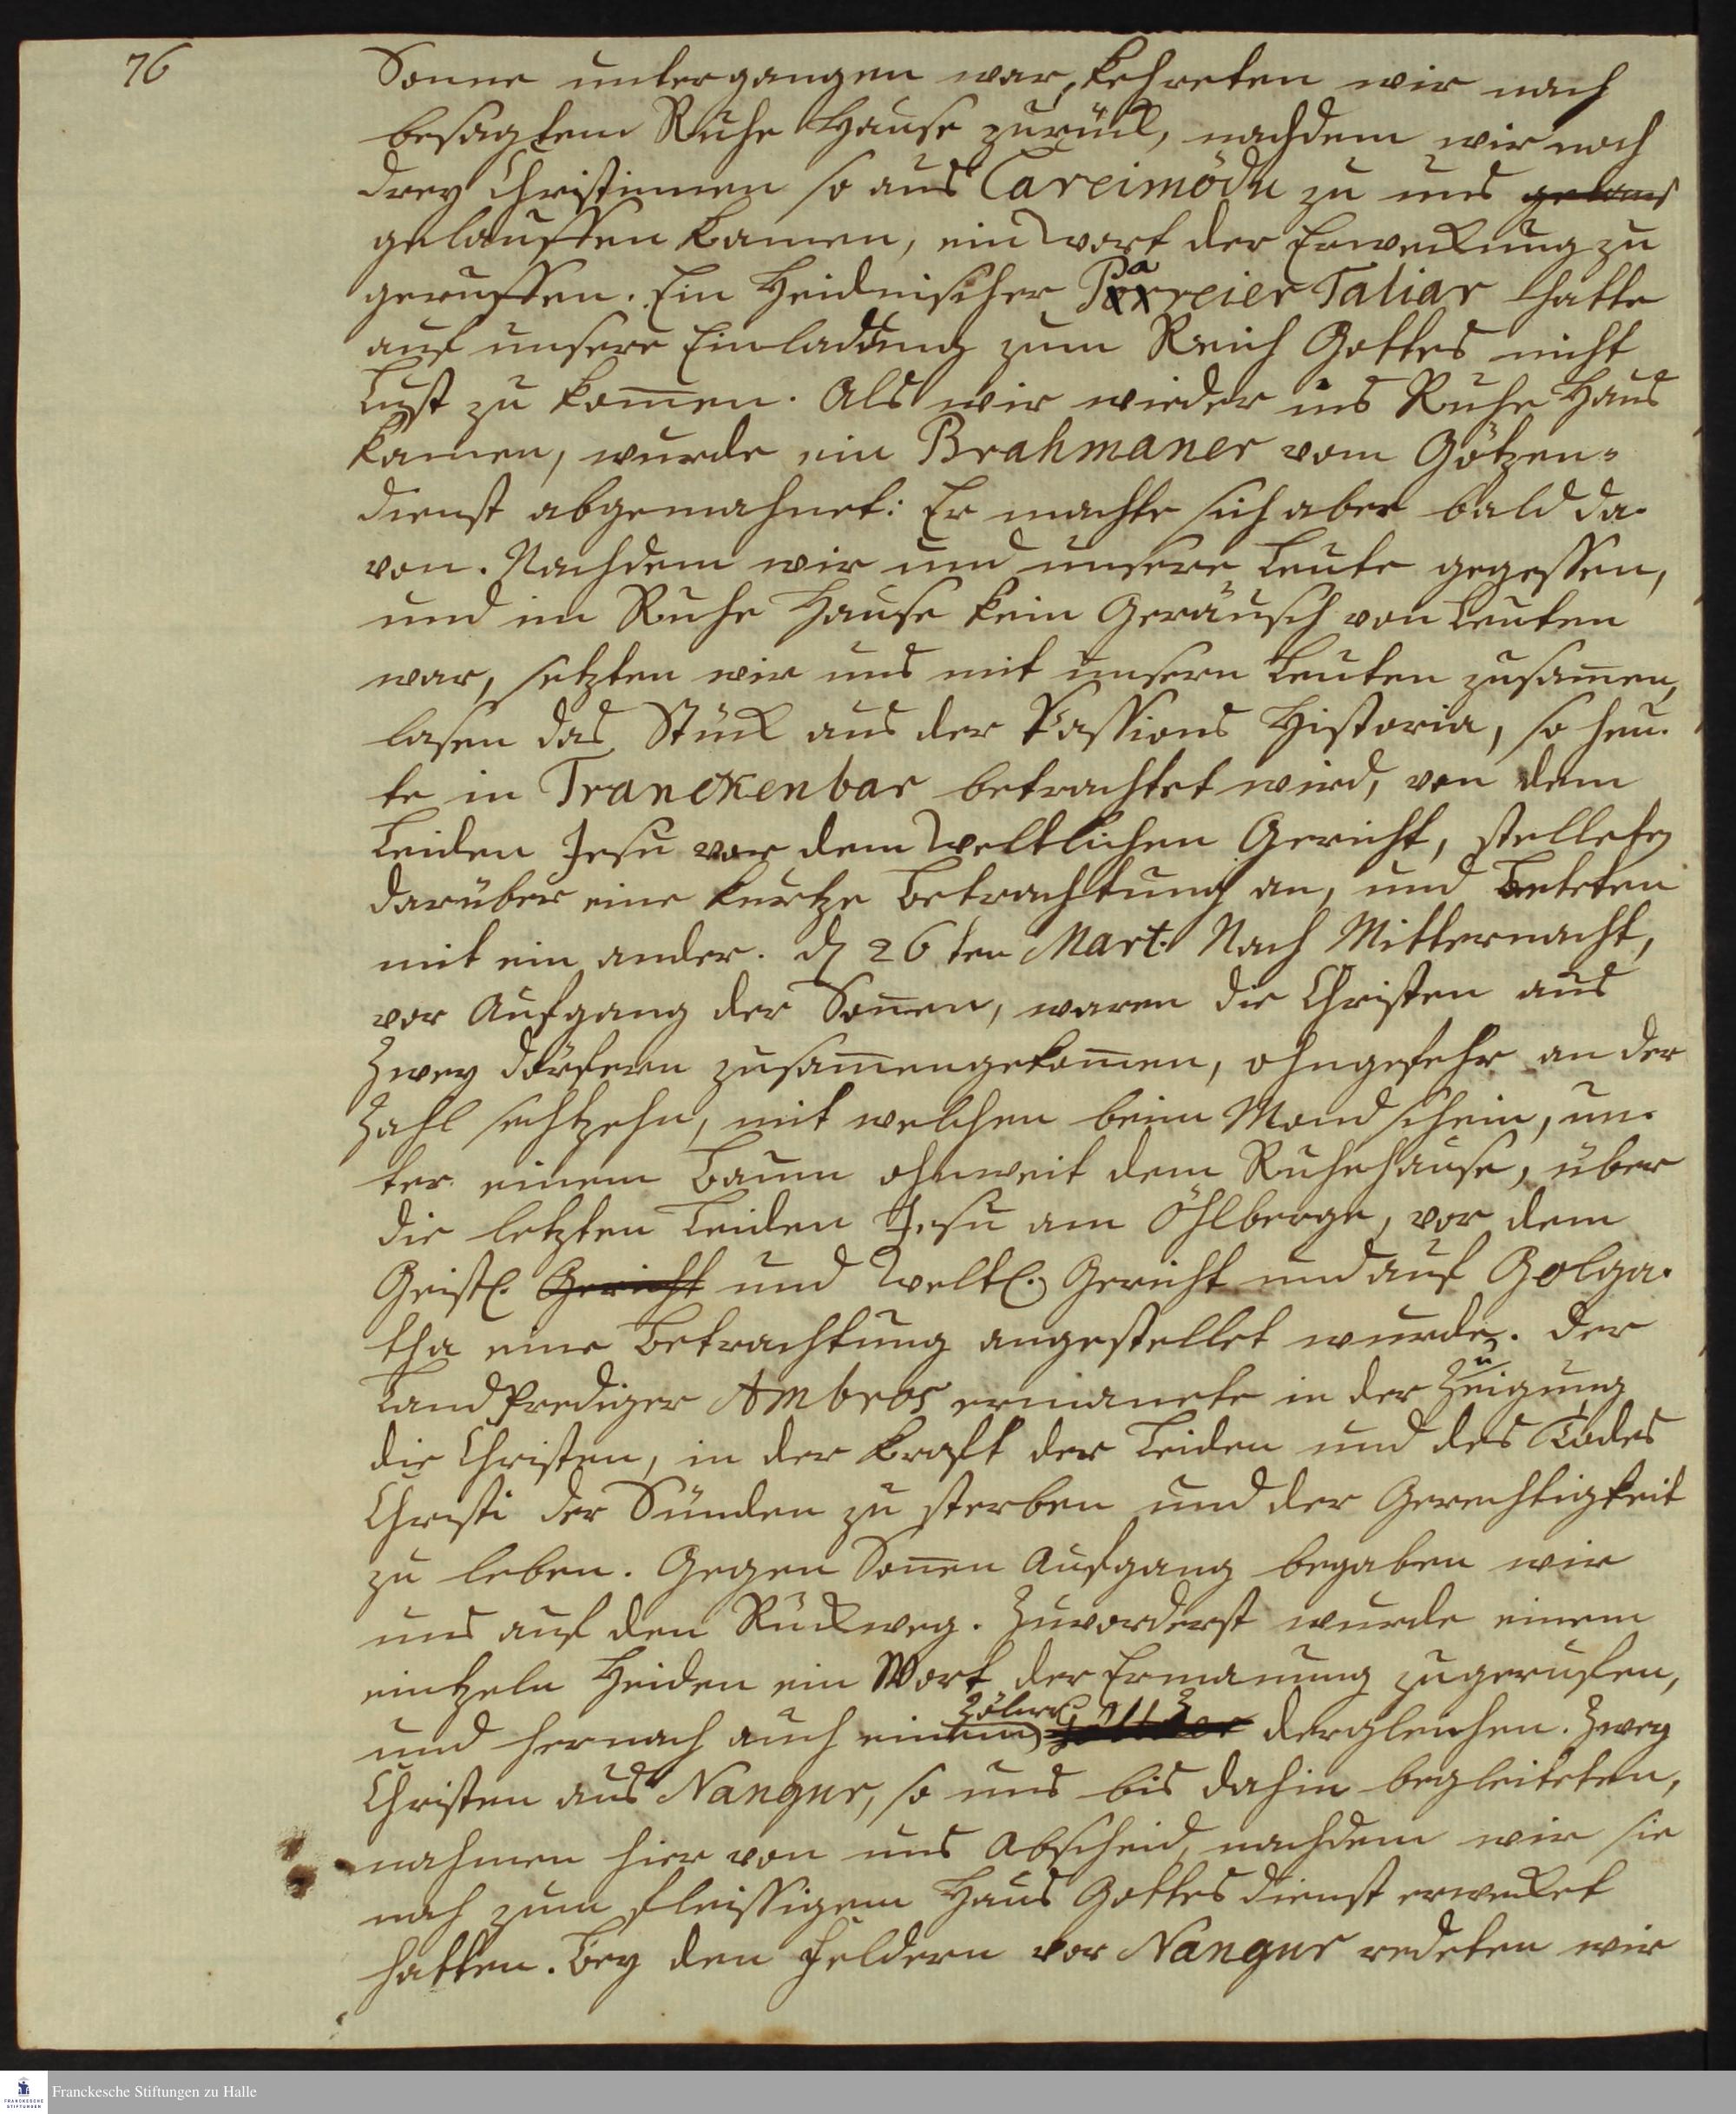 76
Sonne untergangen war, kehreten wir nach
besagtem Ruhe Hause zurück, nachdem wir noch
drey Christinnen so aus Careimödu zu uns
gelauffen kamen, ein Wort der Erweckung zu
geruffen. Ein Heidnischer Parreier Taliar hatte
auf unsere Einladung zum Reich Gottes nicht
Lust zu kom̅en. Als wir wieder ins Ruhe Haus
kamen, wurde ein Brahmaner vom Götzen-
dienst abgemahnet: Er machte sich aber bald da-
von. Nachdem wir und unsere Leute gegessen,
und im Ruhe Hause kein Geräusch von Leuten
war, setzten wir uns mit unsern Leuten zusam̅en,
lasen das Stück aus der Passions Historia, so heu-
te in Tranckenbar betrachtet wird, von dem
Leiden Jesu vor dem Weltlichen Gericht, stelleten
darüber eine kurtze Betrachtung an, und beteten
mit ein ander. d 26ten Mart. Nach Mitternacht,
vor Aufgang der Son̅en, waren die Christen aus
Zwey Dörfern zusam̅engekom̅en, ohngefehr an der
Zahl sechtzehn, mit welchen beim Mond schein, un-
ter einem Baum ohnweit dem Ruhehause, über
die letzten Leiden Jesu am Öhlberge, vor dem
Geistl. Gericht und Weltl. Gericht und auf Golga-
tha eine Betrachtung angestellet wurde. Der
Land Prediger Ambros ermanete in der Zueigung
die Christen, in der Kraft der Leiden und des Todes
Christi der Sünden zu sterben und der Gerechtigkeit
zu leben. Gegen Son̅en Aufgang begaben wir
uns auf den Rückweg. Zuvorderst wurde einem
eintzeln Heiden ein Wort der Ermanung zugerufen,
und hernach auch einem Zölner dergleichen. Zwey
Christen aus Nangur, so uns bis dahin begleiteten,
nahmen hier von uns Abscheid, nachdem wir sie
noch zum fleissigem Haus Gottes dienst erwecket
hatten. Bey den Feldern vor Nangur redeten wir
Franckesche Stiftungen zu Halle
FRANCKESCHE
STIFTUNGEN